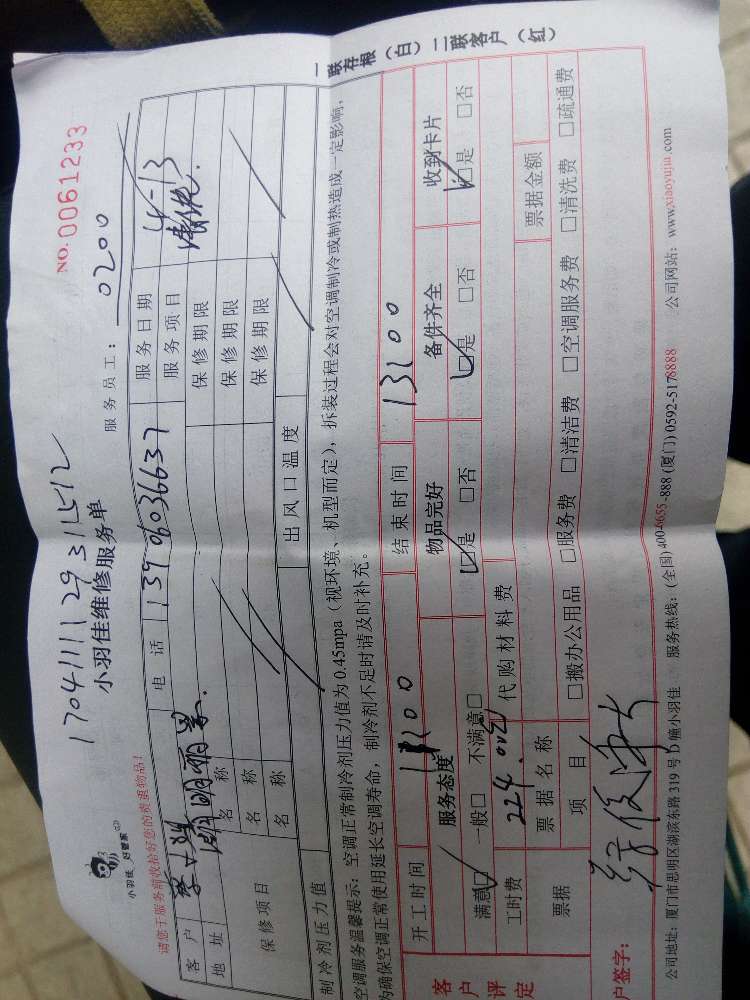 1704111129311512
小羽佳 好管家
小羽佳维修服务单
NO. 0061233
请您于服务前收拾好您的贵重物品!
服务员工: 0200
客户 电话 13906036637 服务日期 4-13
地址 服务项目 清洗
保修项目 名称 保修期限
名称 保修期限
名称 保修期限
制冷剂压力值 出风口温度
空调服务温馨提示:空调正常制冷剂压力值为0.45mpa(视环境、机型而定),拆装过程会对空调制冷或制热造成一定影响,
为确保空调正常使用延长空调寿命,制冷剂不足时请及时补充。
开工时间 结束时间 13:00
客户评定 服务态度 物品完好 备件齐全 收到卡片
满意□ 一般□ 不满意□ □是 □否 □是 □否 □是 □否
工时费 224.00元 代购材料费
票据 票据名称 票据金额
项目 □搬办公用品 □服务费 □清洁费 □空调服务费 □清洗费 □疏通费
户签字:
公司地址:厦门市思明区湖滨东路319号D幢小羽佳 服务热线:(全国)400-6655-888 (厦门)0592-5178888 公司网站:www.xiaoyujia.com
一联存根(白)二联客户(红)